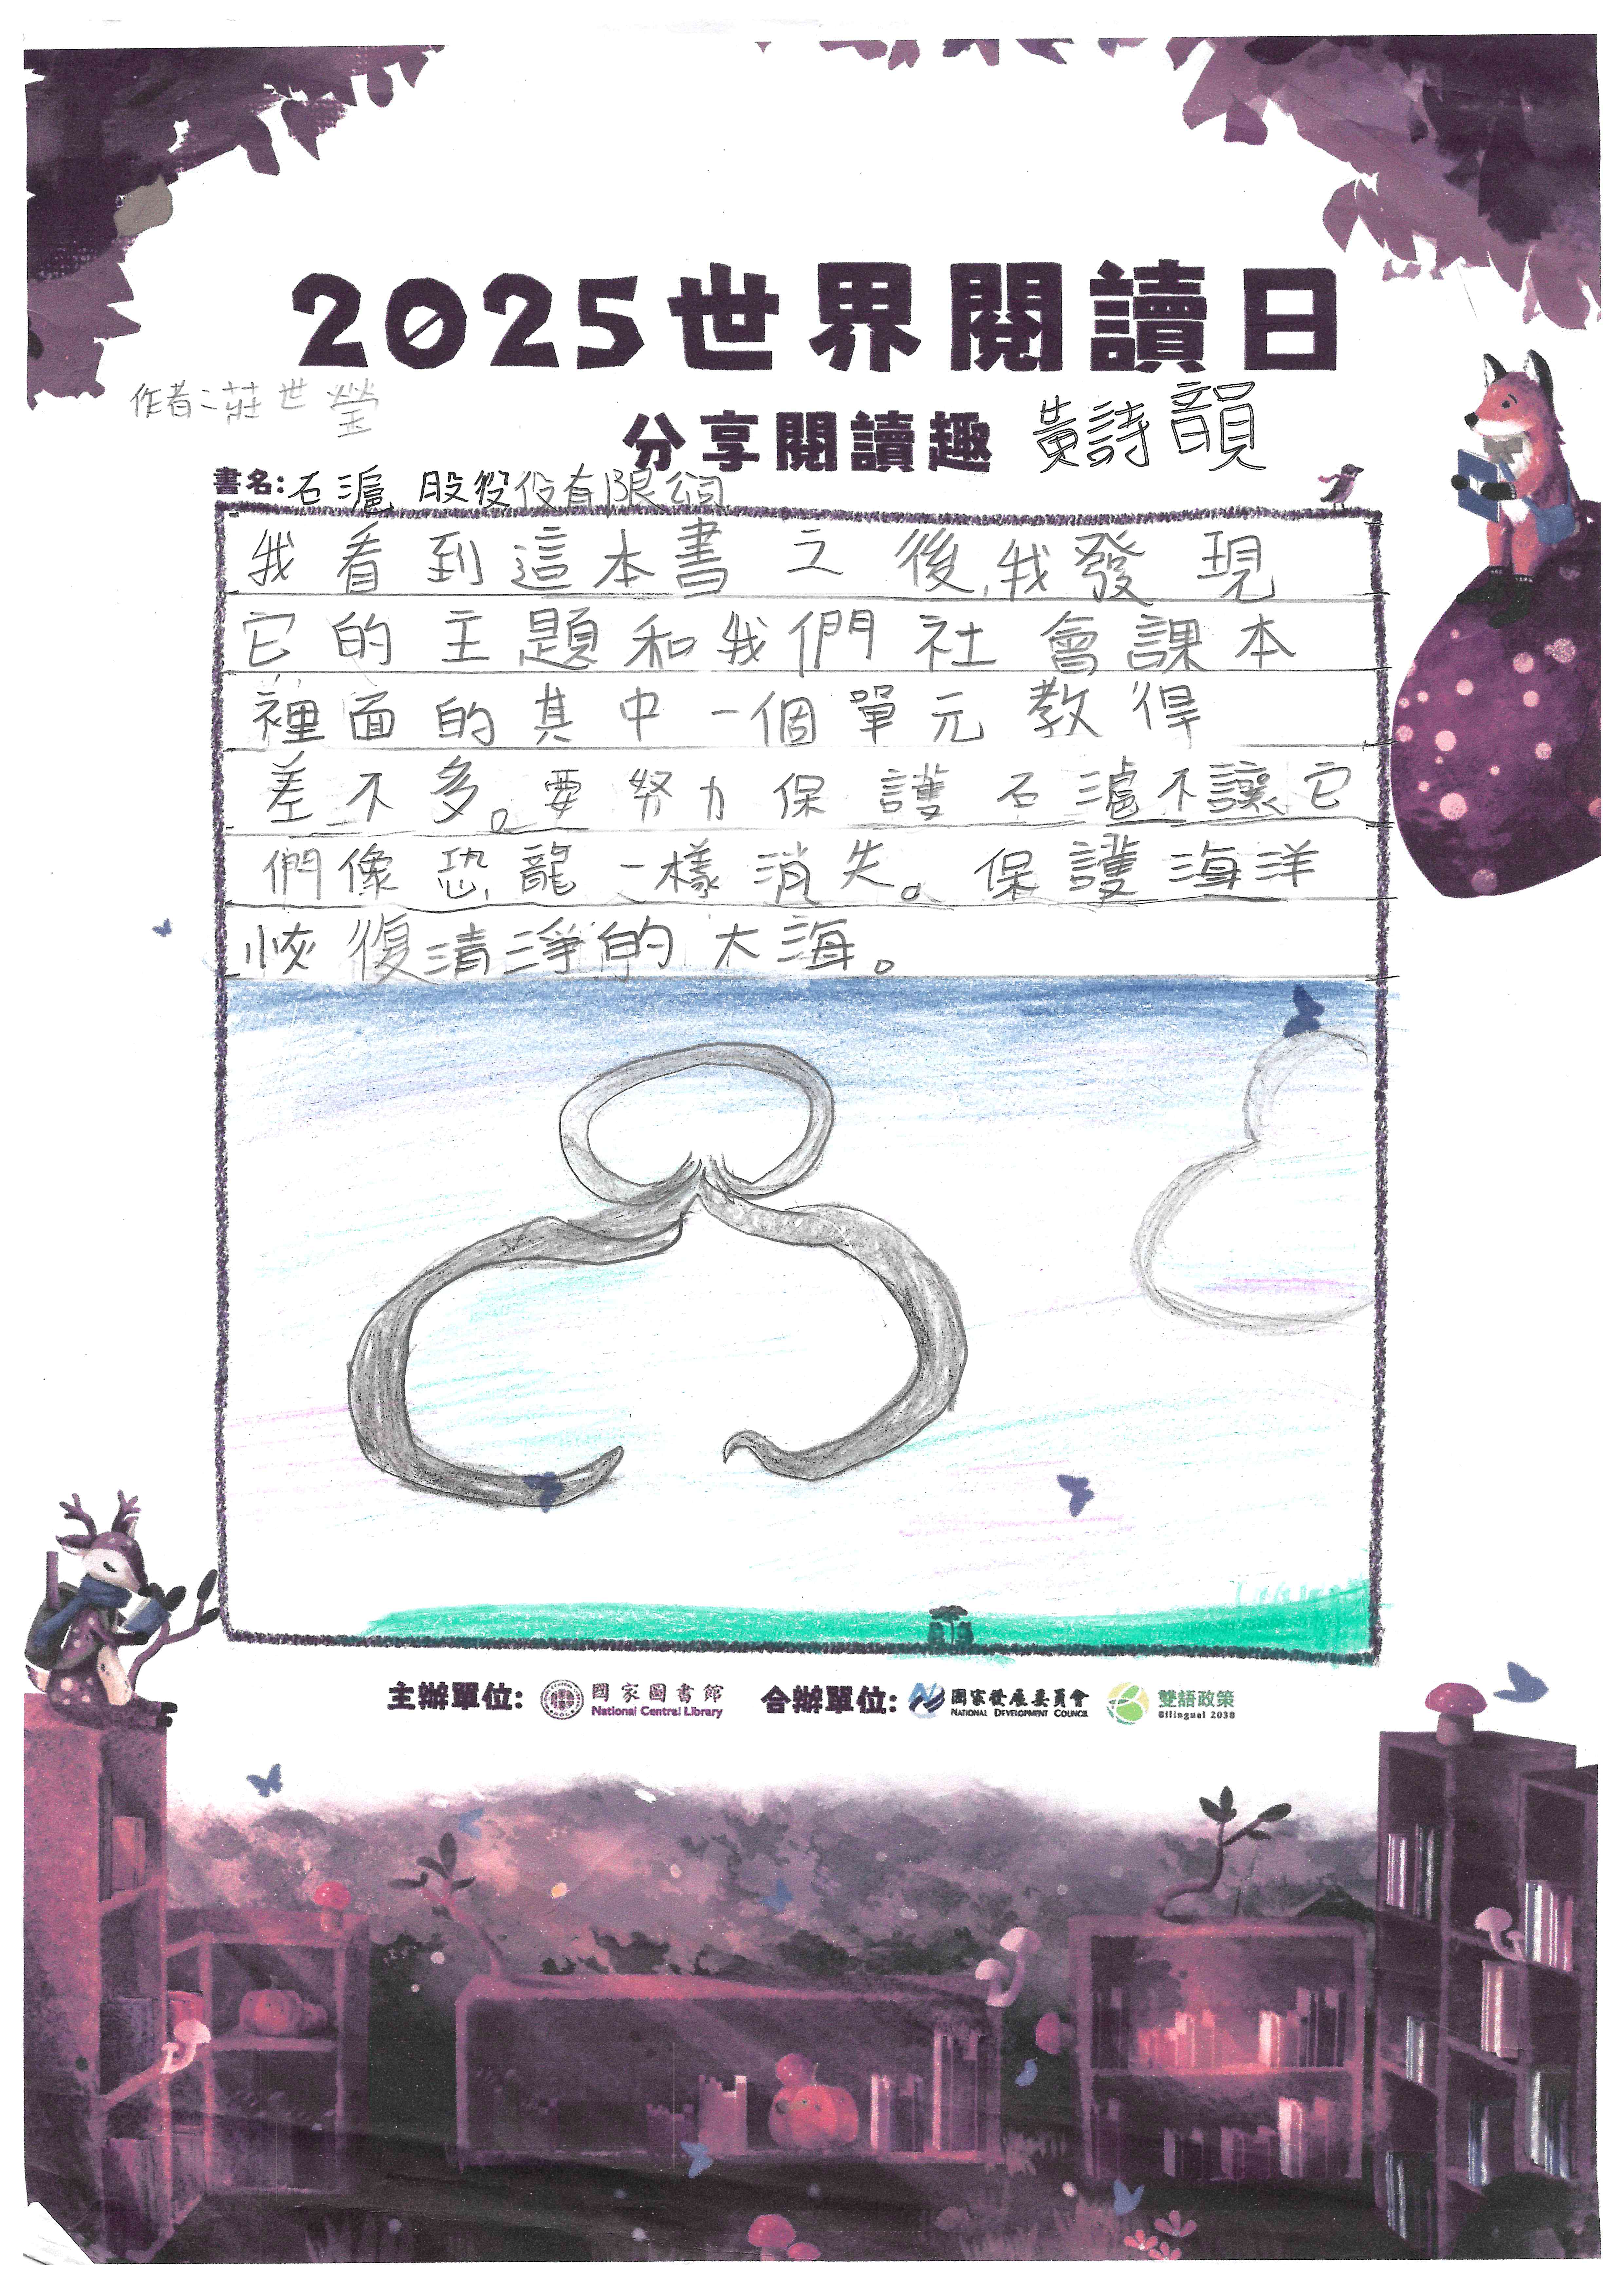 2025世界閱讀日
作者:莊世瑩
分享閱讀趣 黃詩韻
書名:石滬股份有限公司
我看到這本書之後,我發現
它的主題和我們社會課本
裡面的其中一個單元教得
差不多。要努力保護石滬不讓它
們像恐龍一樣消失。保護海洋
恢復清淨的大海。
主辦單位: 國家圖書館 National Central Library 合辦單位: 國家發展委員會 NATIONAL DEVELOPMENT COUNCIL 雙語政策 Bilingual 2030